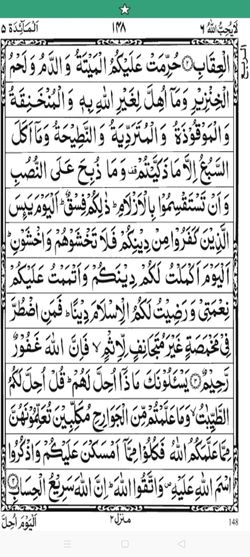 لَا يُحِبُّ اللهُ ٦ ١٤٨ اَلْمَآئِدَة ٥
الْعِقَابِ ۝ حُرِّمَتْ عَلَيْكُمُ الْمَيْتَةُ وَ الدَّمُ وَ لَحْمُ
الْخِنْزِيْرِ وَ مَاۤ اُهِلَّ لِغَيْرِ اللهِ بِهٖ وَ الْمُنْخَنِقَةُ
وَ الْمَوْقُوْذَةُ وَ الْمُتَرَدِّيَةُ وَ النَّطِيْحَةُ وَ مَاۤ اَكَلَ
السَّبُعُ اِلَّا مَا ذَكَّيْتُمْ وَ مَا ذُبِحَ عَلَى النُّصُبِ
وَ اَنْ تَسْتَقْسِمُوْا بِالْاَزْلَامِ ذٰلِكُمْ فِسْقٌ اَلْيَوْمَ يَىِٕسَ
الَّذِيْنَ كَفَرُوْا مِنْ دِيْنِكُمْ فَلَا تَخْشَوْهُمْ وَ اخْشَوْنِ
اَلْيَوْمَ اَكْمَلْتُ لَكُمْ دِيْنَكُمْ وَ اَتْمَمْتُ عَلَيْكُمْ
نِعْمَتِيْ وَ رَضِيْتُ لَكُمُ الْاِسْلَامَ دِيْنًا فَمَنِ اضْطُرَّ
فِيْ مَخْمَصَةٍ غَيْرَ مُتَجَانِفٍ لِّاِثْمٍ فَاِنَّ اللهَ غَفُوْرٌ
رَّحِيْمٌ ۝ يَسْـَٔلُوْنَكَ مَا ذَاۤ اُحِلَّ لَهُمْ قُلْ اُحِلَّ لَكُمُ
الطَّيِّبٰتُ وَ مَا عَلَّمْتُمْ مِّنَ الْجَوَارِحِ مُكَلِّبِيْنَ تُعَلِّمُوْنَهُنَّ
مِمَّا عَلَّمَكُمُ اللهُ فَكُلُوْا مِمَّاۤ اَمْسَكْنَ عَلَيْكُمْ وَ اذْكُرُوا
اسْمَ اللهِ عَلَيْهِ وَ اتَّقُوا اللهَ اِنَّ اللهَ سَرِيْعُ الْحِسَابِ ۝
148 منزل ٢ اَلْيَوْمَ اُحِلَّ